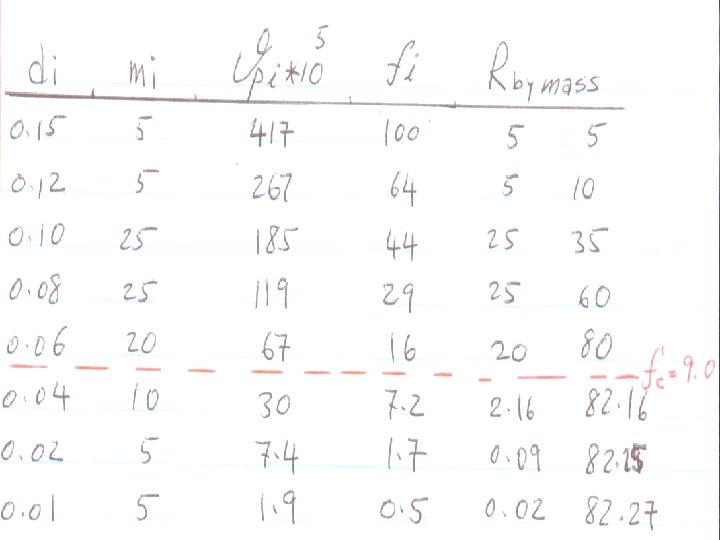 di mi Upi*10⁵ fi R by mass
0.15 5 417 100 5 5
0.12 5 267 64 5 10
0.10 25 185 44 25 35
0.08 25 119 29 25 60
0.06 20 67 16 20 80
fc=9.0
0.04 10 30 7.2 2.16 82.16
0.02 5 7.4 1.7 0.09 82.25
0.01 5 1.9 0.5 0.02 82.27